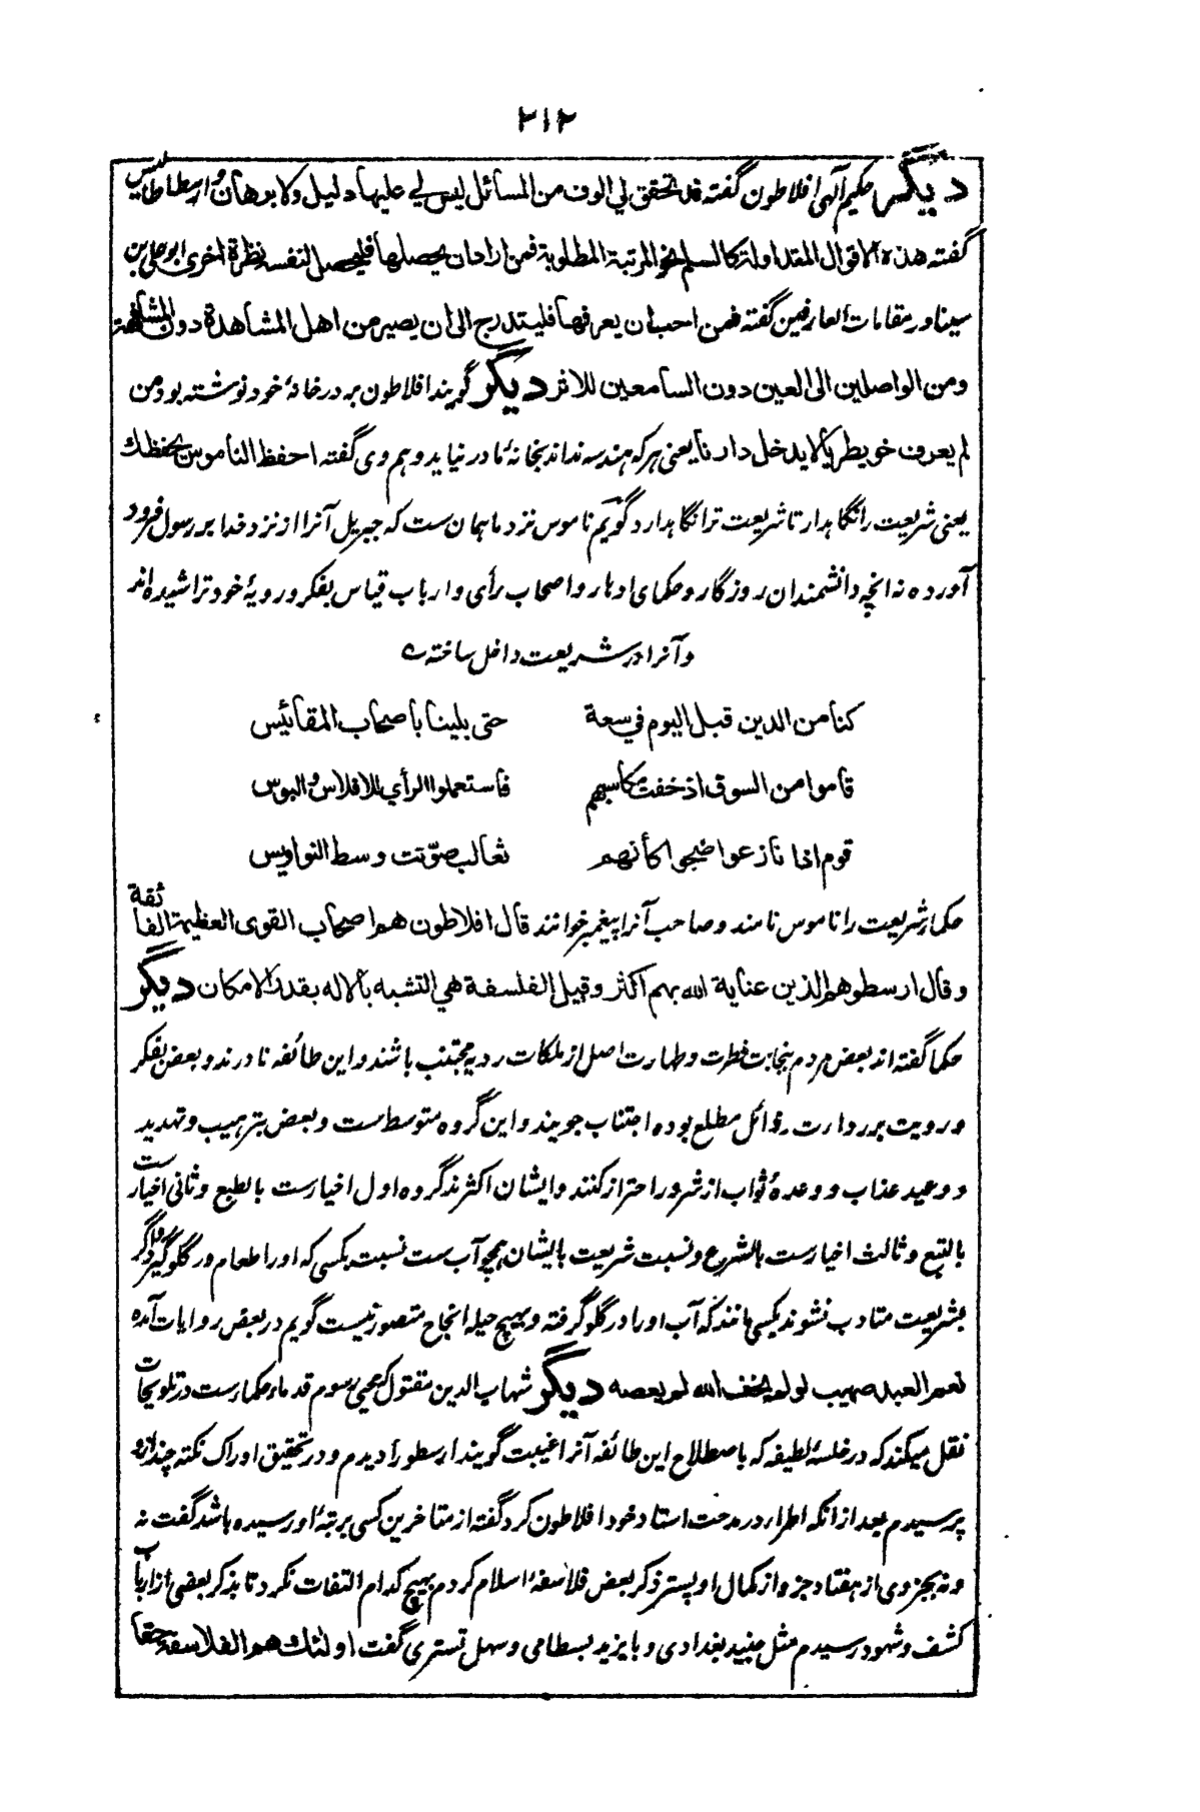 ۲۱۲
دیگر حکیم آلهی افلاطون گفته قد تحقق لي الوف من المسائل ليس لي عليها دليل ولا برهان و ارسطاطالیس
گفته هذه الاقوال المتداولة كالسلم نحو المرتبة المطلوبة فمن اراد ان يحصلها فليحصل لنفسه نظرة اخرى ابو علی بن
سینا در مقامات العارفین گفته فمن احب ان يعرفها فليتدرج الى ان يصير من اهل المشاهدة دون المشافهة
ومن الواصلين الى العين دون السامعين للاثر دیگر گویند افلاطون بر در خانهٔ خود نوشته بود من
لم يعرف خويطريا لا يدخل دارنا یعنی هر که هندسه نداند بخانهٔ ما در نیاید و هم وی گفته احفظ الناموس يحفظك
یعنی شریعت را نگاهدار تا شریعت ترا نگاهدارد گویم ناموس نزد ما همان ست که جبریل آنرا از نزد خدا بر رسول فرود
آورده نه انچه دانشمندان روزگار و حکمای ادهار و اصحاب رأی و ارباب قیاس بفکر و رویهٔ خود تراشیده اند
و آنرا در شریعت داخل ساخته ه
كنا من الدين قبل اليوم في سعة حتى بلينا باصحاب المقائيس
قاموا من السوق اذ خفت مكاسبهم فاستعملوا الرأي للافلاس والبوس
قوم اذا نازعوا ضجوا كأنهم ثعالب صوّتت وسط النواويس
حکما شریعت را ناموس نامند و صاحب آنرا پیغمبر خوانند قال افلاطون هم اصحاب القوى العظيمة الفائقة
و قال ارسطو هم الذين عناية الله بهم اكثر و قيل الفلسفة هي التشبه بالاله بقدر الامكان دیگر
حکما گفته اند بعض مردم بنجابت فطرت و طهارت اصل از ملکات ردیه مجتنب باشند و این طائفه نادرند و بعض بفکر
و رویت بر رداءت رذائل مطلع بوده اجتناب جویند و این گروه متوسط ست و بعض بترهیب و تهدید
و وعید عذاب و وعدهٔ ثواب از شرور احتراز کنند و ایشان اکثرند گروه اول اخیارست بالطبع و ثانی اخیارست
بالتبع و ثالث اخیارست بالشرع و نسبت شریعت بایشان همچو آب ست نسبت بکسی که او را طعام در گلو گیرد و اگر
بشریعت متادب نشوند بکسی مانند که آب او را در گلو گرفته و بهیچ حیله انجاح متصور نیست گویم در بعض روایات آمده
نعم العبد صهيب لو لم يخف الله لم يعصه دیگر شهاب الدین مقتول که محیی رسوم قدماء حکمارست در تلویحات
نقل میکند که در خلسهٔ لطیفه که باصطلاح این طائفه آنرا غیبت گویند ارسطو را دیدم و در تحقیق ادراک نکته چند ازو
پرسیدم بعد از انکه اطراء در مدحت استاد خود افلاطون کرد گفته از متاخرین کسی برتبهٔ او رسیده باشد گفت نه
و نه بجزوی از هفتاد جزو از کمال او پستر ذکر بعض فلاسفهٔ اسلام کردم بهیچ کدام التفات نکرد تا بذکر بعضی از ارباب
کشف و شهود رسیدم مثل جنید بغدادی و بایزید بسطامی و سهل تستری گفت اولئك هم الفلاسفة حقا